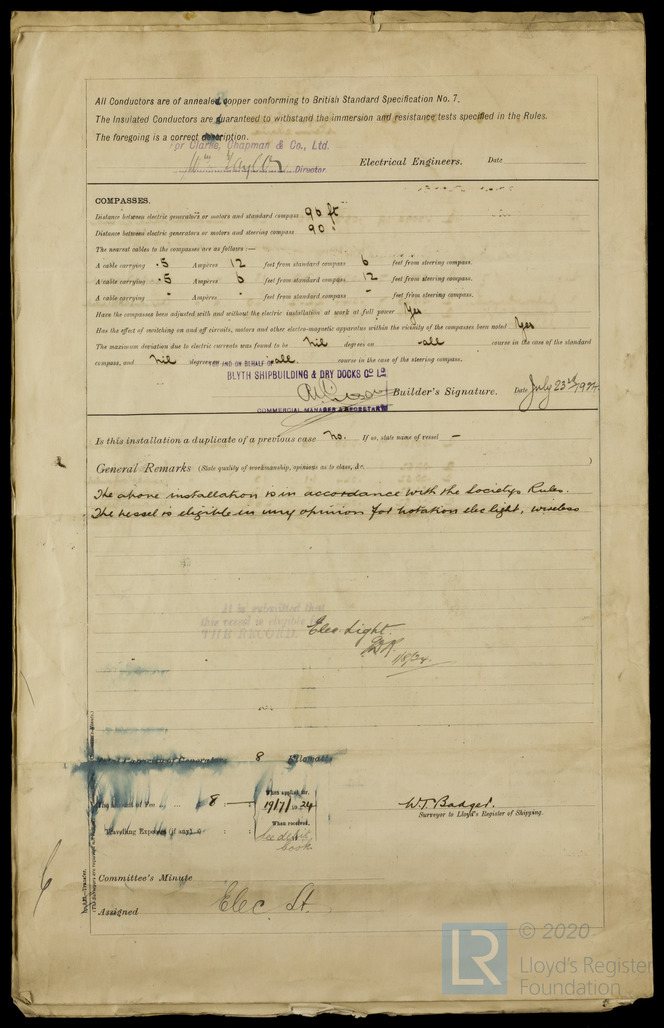 All Conductors are of annealed copper conforming to British Standard Specification No. 7.
The Insulated Conductors are guaranteed to withstand the immersion and resistance tests specified in the Rules.
The foregoing is a correct description.
For Clarke, Chapman & Co., Ltd.
Wm Taylor Director. Electrical Engineers. Date
COMPASSES.
Distance between electric generators or motors and standard compass 90 ft
Distance between electric generators or motors and steering compass 90 "
The nearest cables to the compasses are as follows :—
A cable carrying .5 Ampères 12 feet from standard compass 6 feet from steering compass.
A cable carrying .5 Ampères 6 feet from standard compass 12 feet from steering compass.
A cable carrying - Ampères - feet from standard compass - feet from steering compass.
Have the compasses been adjusted with and without the electric installation at work at full power Yes
Has the effect of switching on and off circuits, motors and other electro-magnetic apparatus within the vicinity of the compasses been noted Yes
The maximum deviation due to electric currents was found to be nil degrees on all course in the case of the standard
compass, and nil degrees on all course in the case of the steering compass.
FOR AND ON BEHALF OF
BLYTH SHIPBUILDING & DRY DOCKS Co Ld
Builder's Signature. Date July 23rd 1924
COMMERCIAL MANAGER & SECRETARY
Is this installation a duplicate of a previous case no. If so, state name of vessel —
General Remarks (State quality of workmanship, opinions as to class, &c. )
The above installation is in accordance with the Societys Rules.
The vessel is eligible in my opinion for notation elec light, wireless
It is submitted that
this vessel is eligible for
THE RECORD. Elec. Light.
1/8/24.
Total Capacity of Generators 8 Kilowatts
The amount of Fee ... ... £ 8 : — : When applied for, 19/7/1924
When received,
Travelling Expenses (if any) £ : : See debit book
W.T. Badger.
Surveyor to Lloyd's Register of Shipping.
Committee's Minute
Assigned Elec Lt.
© 2020
LR Lloyd's Register
Foundation